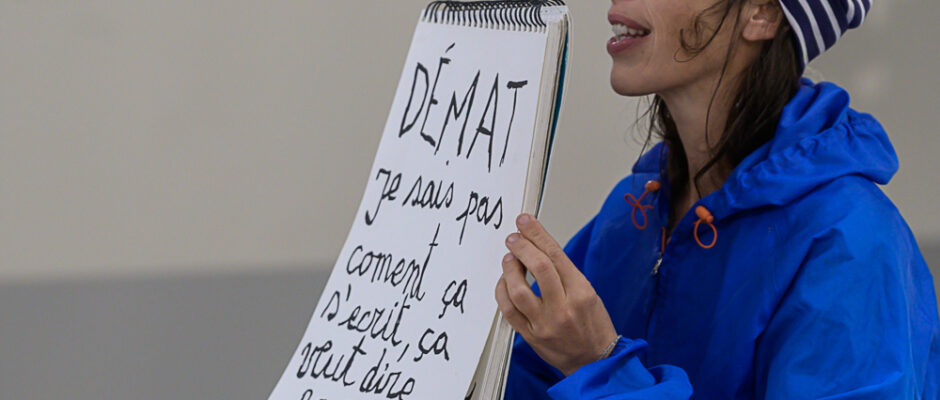 DÉMAT
je sais pas
coment ça
s'ecrit, ça
veut dire